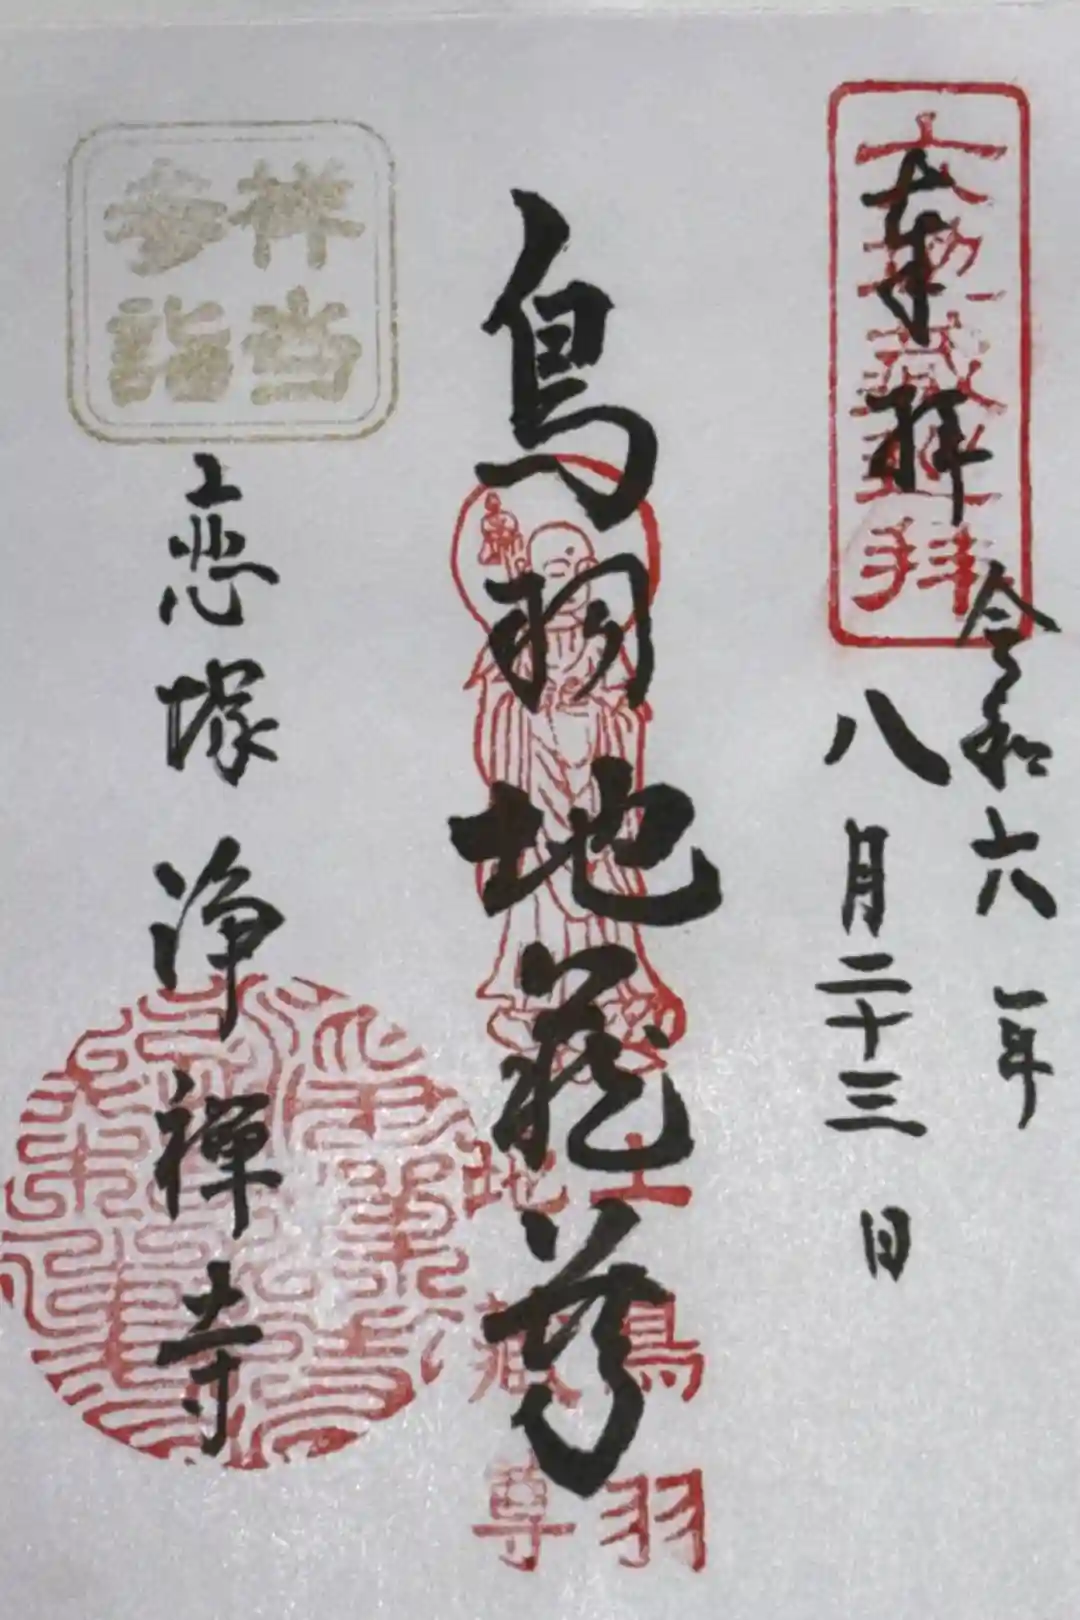 六地藏巡拝
奉拝
令和六年
八月二十三日
鳥羽地蔵尊
上鳥羽
地藏尊
祥当
参詣
恋塚 浄禅寺